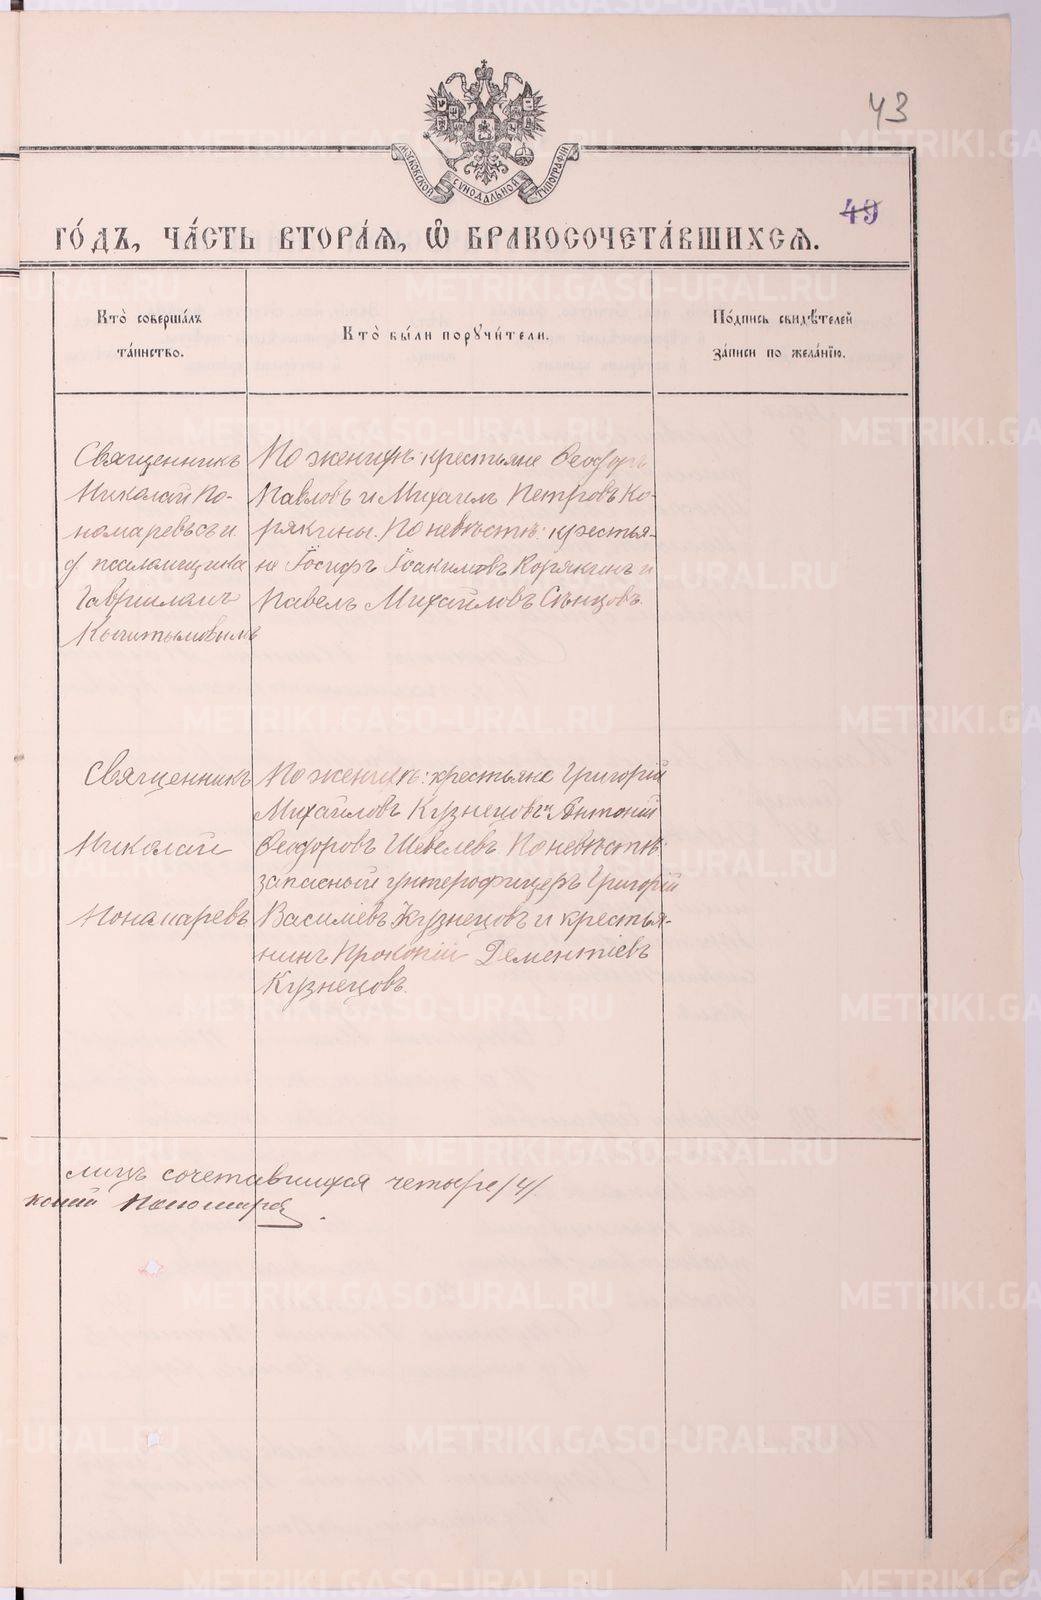 43
МОСКОВСКОЙ СѴНОДАЛЬНОЙ ТИПОГРАФІИ
49
ГО́ДЪ, ЧА́СТЬ ВТОРА́Я, Ѽ БРАКОСОЧЕТА́ВШИХСЯ.
Кто̀ соверша́лъ
та́инство.
Кто̀ бы́ли порꙋчи́тели.
По́дпись свидѣ́телей
за́писи по жела́нїю.
Священникъ
Николай По-
номаревъ съ и.
д. псаломщика
Гавриилам
Кыштымовымъ
По женихѣ: крестьяне Ѳеодоръ
Павловъ и Михаилъ Петровъ Ко-
рякины. По невѣстѣ: крестья-
не Іосифъ Іоакимовъ Корякинъ и
Павелъ Михайловъ Сѣнцовъ.
Священникъ
Николай
Пономаревъ
По женихѣ: крестьяне Григорій
Михайловъ Кузнецовъ и Антоній
Ѳеодоровъ Шевелевъ. По невѣстѣ:
запасный унтерофицеръ Григорій
Василіевъ Кузнецовъ и крестья-
нинъ Прокопій Дементіевъ
Кузнецовъ.
лицъ сочетавшихся четыре /4/.
колай Пономарев
METRIKI.GASO-URAL.RU